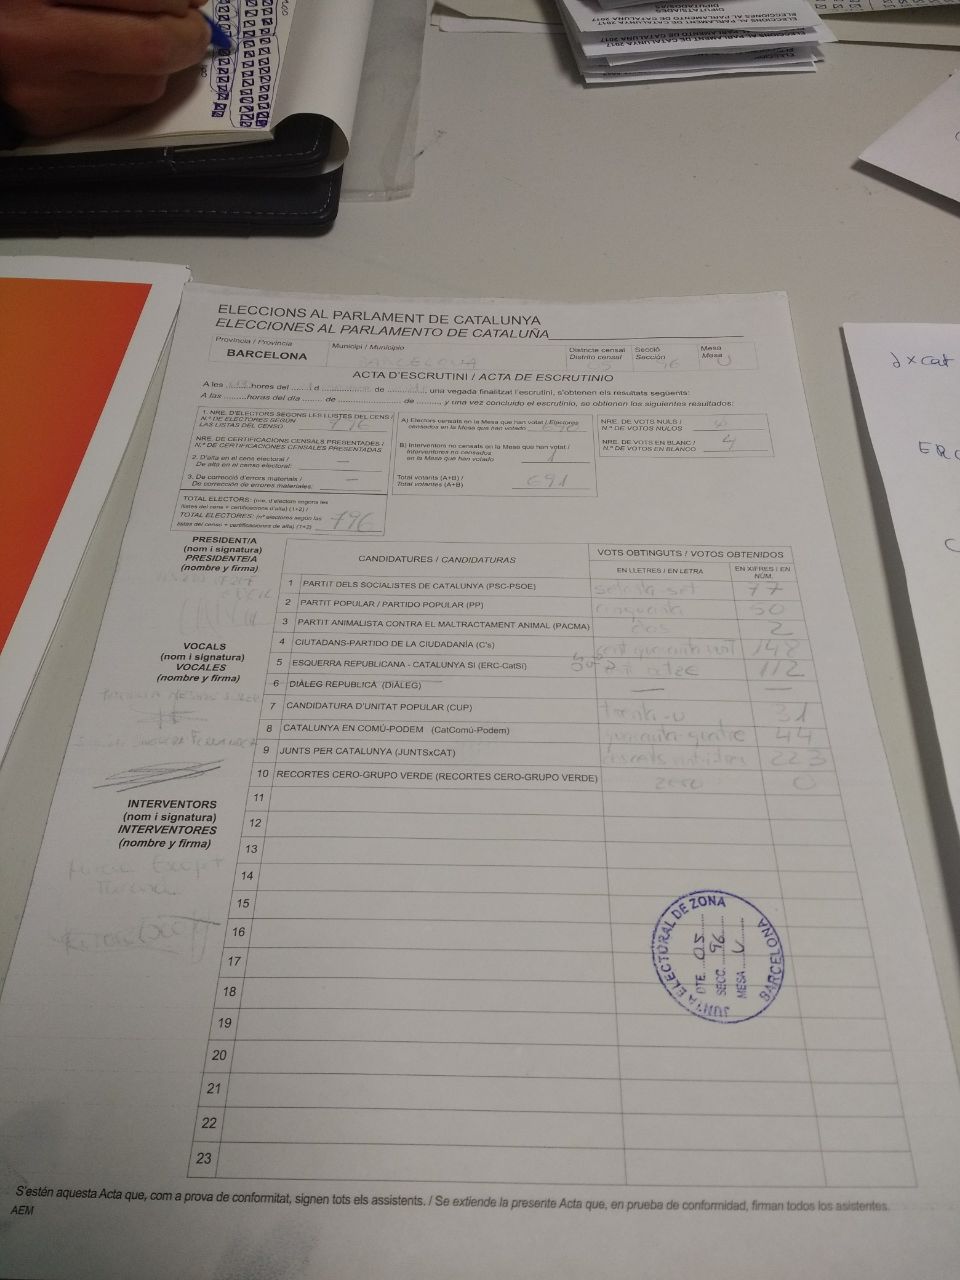 ELECCIONS AL PARLAMENT DE CATALUNYA 2017
ELECCIONS AL PARLAMENT DE CATALUNYA
DIPUTATS/DES
DIPUTADOS/AS
jxcat
ERC
ELECCIONS AL PARLAMENT DE CATALUNYA
ELECCIONES AL PARLAMENTO DE CATALUÑA
Província / Provincia
BARCELONA
Municipi / Municipio
BARCELONA
Districte censal
Distrito censal
05
Secció
Sección
96
Mesa
Mesa
U
ACTA D'ESCRUTINI / ACTA DE ESCRUTINIO
A les hores del d de , una vegada finalitzat l'escrutini, s'obtenen els resultats següents:
A las horas del día de de y una vez concluido el escrutinio, se obtienen los siguientes resultados:
1. NRE. D'ELECTORS SEGONS LES LLISTES DEL CENS /
N.º DE ELECTORES SEGÚN
LAS LISTAS DEL CENSO 796
NRE. DE CERTIFICACIONS CENSALS PRESENTADES /
N.º DE CERTIFICACIONES CENSALES PRESENTADAS
2. D'alta en el cens electoral /
De alta en el censo electoral: —
3. De correcció d'errors materials /
De corrección de errores materiales: —
TOTAL ELECTORS: (nre. d'electors segons les
llistes del cens + certificacions d'alta) (1+2) /
TOTAL ELECTORES: (nº electores según las
listas del censo + certificaciones de alta) (1+2) 796
A) Electors censats en la Mesa que han votat / Electores
censados en la Mesa que han votado 690
B) Interventors no censats en la Mesa que han votat /
Interventores no censados
en la Mesa que han votado 1
Total votants (A+B) /
Total votantes (A+B) 691
NRE. DE VOTS NULS /
N.º DE VOTOS NULOS
NRE. DE VOTS EN BLANC /
N.º DE VOTOS EN BLANCO 4
PRESIDENT/A
(nom i signatura)
PRESIDENTE/A
(nombre y firma)
VOCALS
(nom i signatura)
VOCALES
(nombre y firma)
INTERVENTORS
(nom i signatura)
INTERVENTORES
(nombre y firma)
CANDIDATURES / CANDIDATURAS
VOTS OBTINGUTS / VOTOS OBTENIDOS
EN LLETRES / EN LETRA
EN XIFRES / EN NÚM.
1 PARTIT DELS SOCIALISTES DE CATALUNYA (PSC-PSOE) setanta-set 77
2 PARTIT POPULAR / PARTIDO POPULAR (PP) cinquanta 50
3 PARTIT ANIMALISTA CONTRA EL MALTRACTAMENT ANIMAL (PACMA) dos 2
4 CIUTADANS-PARTIDO DE LA CIUDADANÍA (C's) cent quaranta vuit 148
5 ESQUERRA REPUBLICANA - CATALUNYA SI (ERC-CatSí) 112
6 DIÀLEG REPUBLICÀ (DIÀLEG) — —
7 CANDIDATURA D'UNITAT POPULAR (CUP) trenta-u 31
8 CATALUNYA EN COMÚ-PODEM (CatComú-Podem) quaranta-quatre 44
9 JUNTS PER CATALUNYA (JUNTSxCAT) 223
10 RECORTES CERO-GRUPO VERDE (RECORTES CERO-GRUPO VERDE) zero 0
11
12
13
14
15
16
17
18
19
20
21
22
23
JUNTA ELECTORAL DE ZONA
BARCELONA
DTE. 05
SECC. 96
MESA U
S'estén aquesta Acta que, com a prova de conformitat, signen tots els assistents. / Se extiende la presente Acta que, en prueba de conformidad, firman todos los asistentes.
AEM